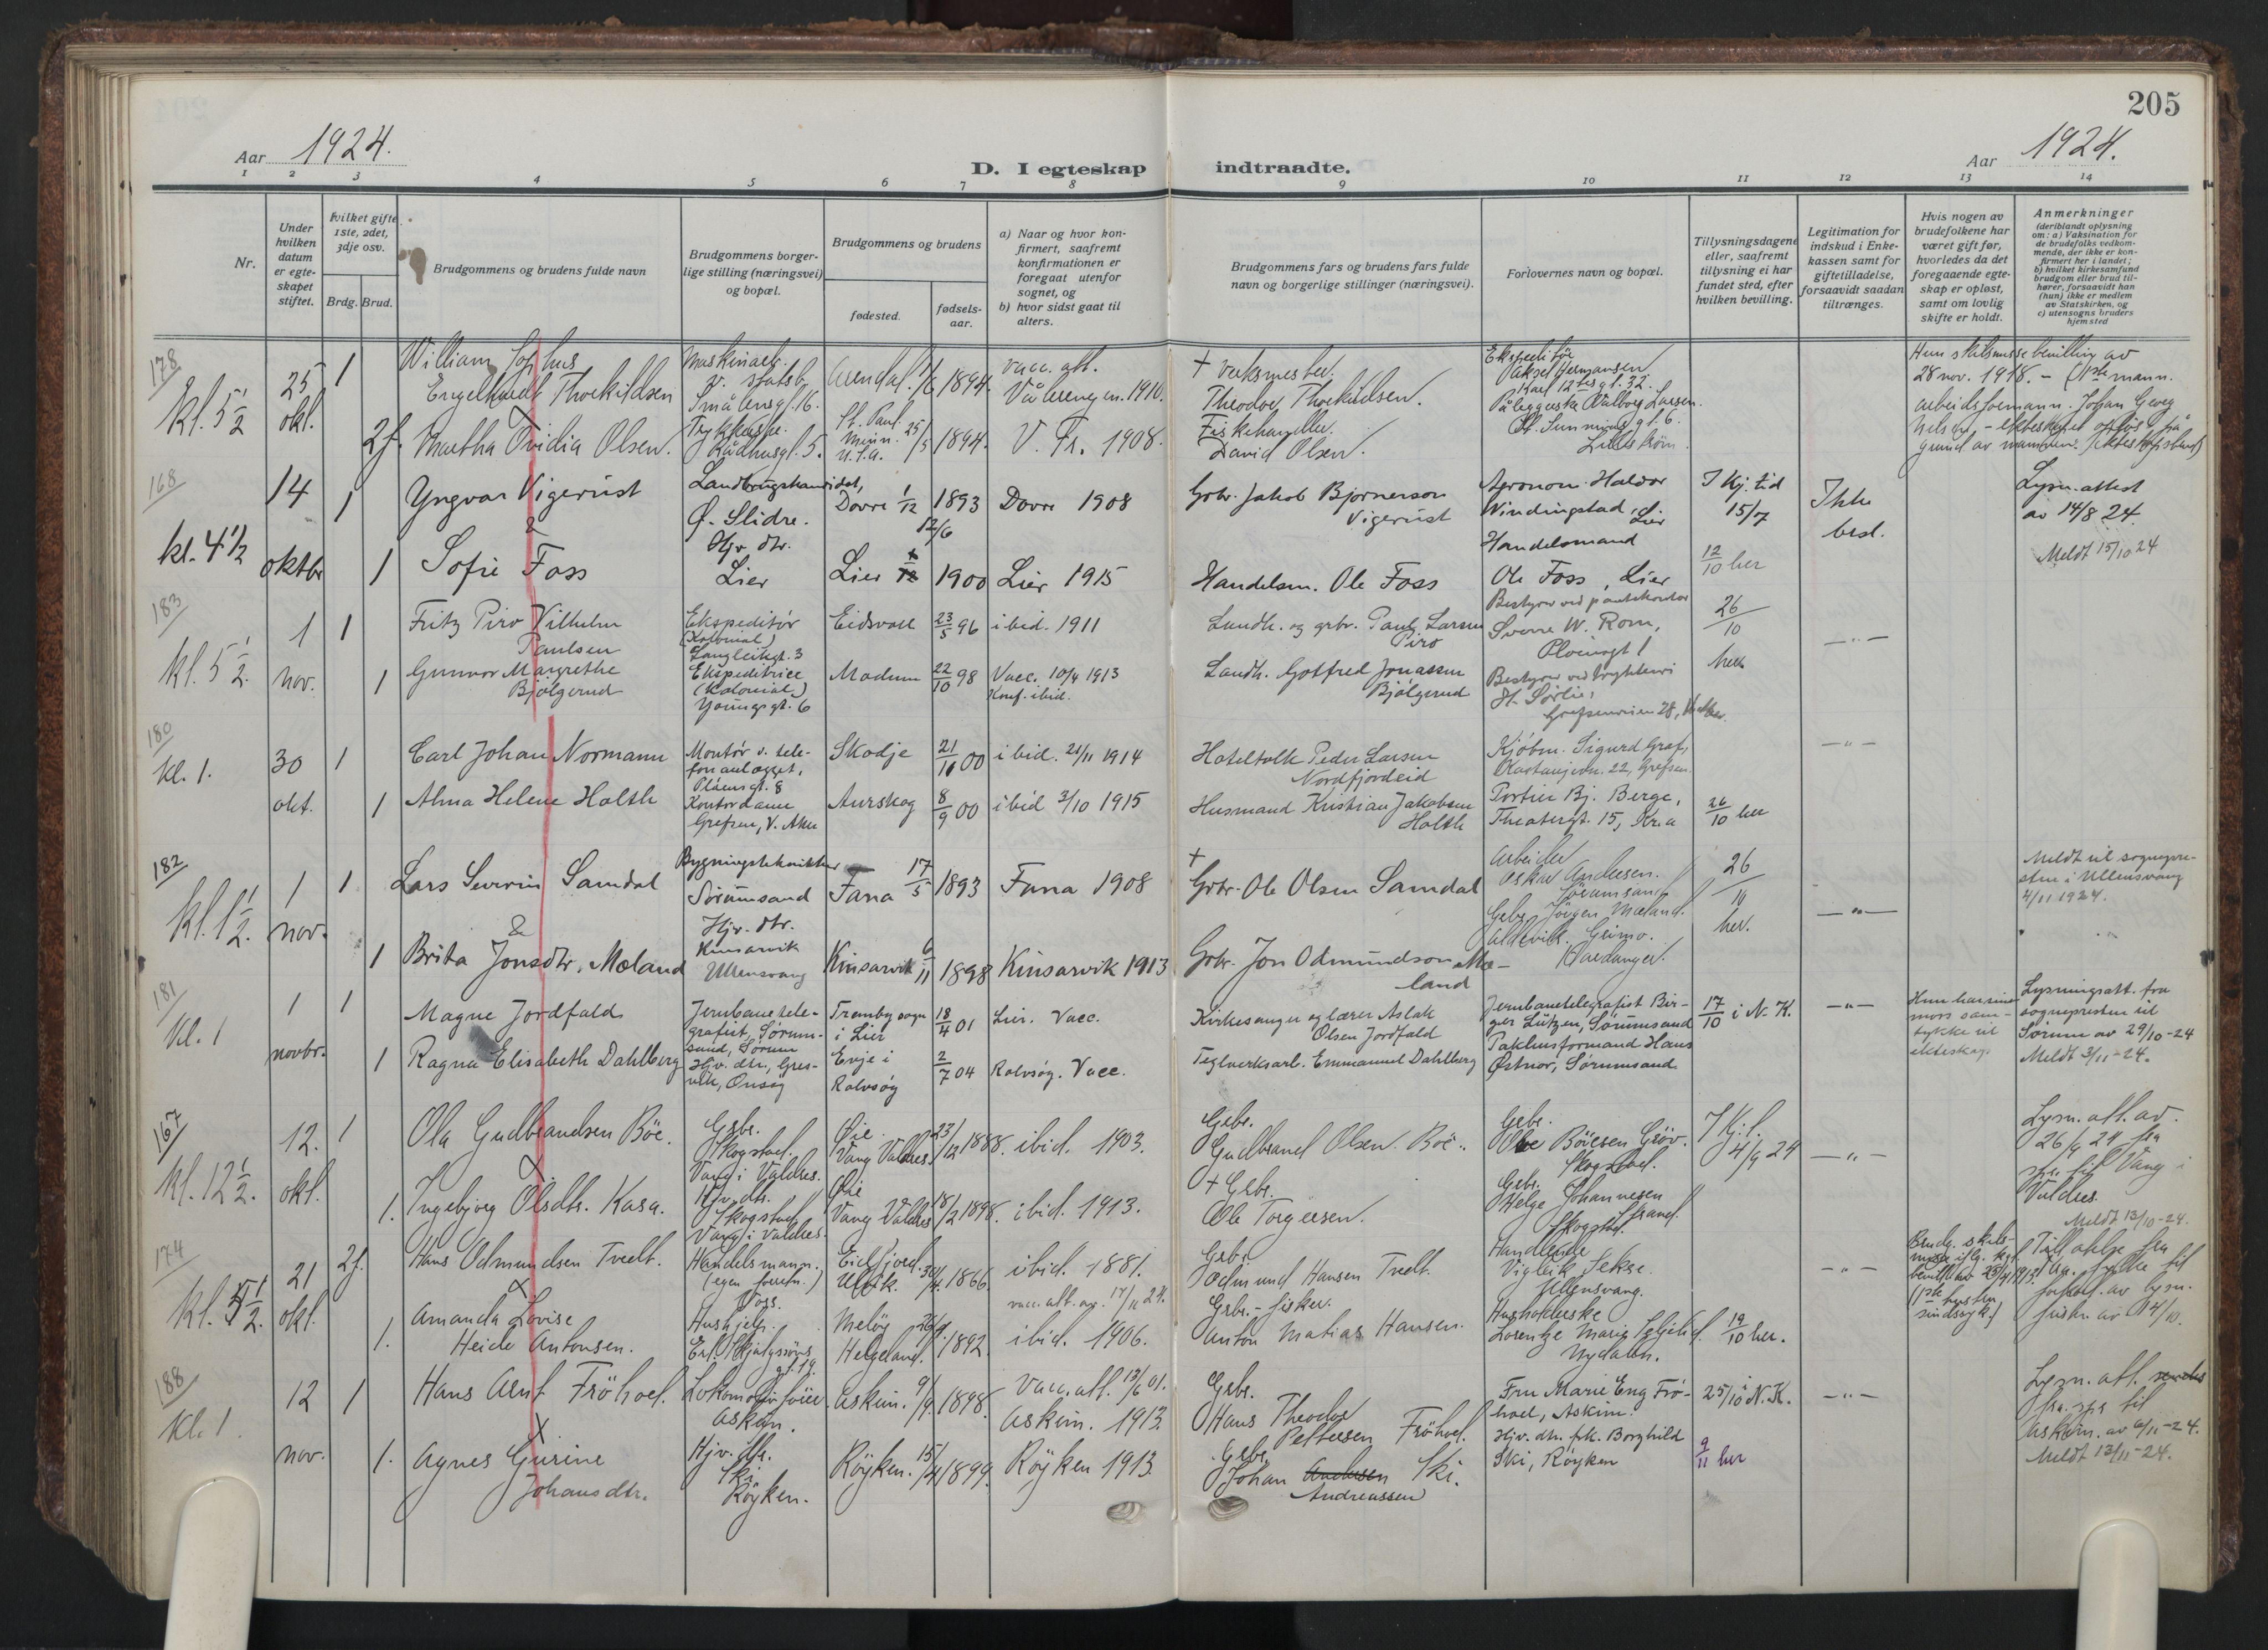 205
Aar 1924.
D. I egteskap indtraadte.
Aar 1924.
1 2 3 4 5 6 7 8 9 10 11 12 13 14
Nr.
Under hvilken datum er egteskapet stiftet.
hvilket gifte 1ste, 2det, 3dje osv.
Brdg. Brud.
Brudgommens og brudens fulde navn
Brudgommens borgerlige stilling (næringsvei) og bopæl.
Brudgommens og brudens
fødested.
fødselsaar.
a) Naar og hvor konfirmert, saafremt konfirmationen er foregaat utenfor sognet, og
b) hvor sidst gaat til alters.
Brudgommens fars og brudens fars fulde navn og borgerlige stillinger (næringsvei).
Forlovernes navn og bopæl.
Tillysningsdagene eller, saafremt tillysning ei har fundet sted, efter hvilken bevilling.
Legitimation for indskud i Enkekassen samt for giftetilladelse, forsaavidt saadan tiltrænges.
Hvis nogen av brudefolkene har været gift før, hvorledes da det foregaaende egteskap er opløst, samt om lovlig skifte er holdt.
Anmerkninger (deriblandt oplysning om: a) Vaksination for de brudefolks vedkommende, der ikke er konfirmert her i landet; b) hvilket kirkesamfund brudgom eller brud tilhører, forsaavidt han (hun) ikke er medlem av Statskirken, og c) utensogns bruders hjemsted
178
kl. 5 1/2
25 okt.
1
William Sophus
Engelhardt Thorkildsen
Maskinarb.
v. statsb.
Smålensgt. 16.
Arendal. 1894.
vacc. att.
Vålerengen. 1910.
+ Verksmester.
Theodor Thorkildsen.
Ekspeditør
Aksel Hermansen
Karl 12tes gt. 32.
2f. Martha Ovidia Olsen.
Rådhusgt. 5.
St. Paul. Minn. U.S.A. 25/5 1894.
V. Fr. 1908.
Fiskehandler.
David Olsen.
Valborg Larsen.
Lillestrøm.
Hun skilsmisse bevilling av
28 nov. 1918. - (1ste mann.
arbeidsformann. Johan Georg
168
kl. 4 1/2
14 oktbr
1
Yngvar Vigerust
&
Landbrukskandidat,
Ø. Slidre.
Dovre 1/12 1893
Dovre 1908
Grbr. Jakob Bjørnerson
Vigerust
Agronom Haldor
Windingstad, Lier
I Kj. tid
15/7
Ikke
besl.
Lysn. attest
av 14/8 24.
Meldt 15/10 24
1 Sofie Foss
Hjv. dtr.
Lier
Lier 12/6 1900
Lier 1915
Handelsm. Ole Foss
Handelsmand
Ole Foss, Lier
12/10 her
183
kl. 5 1/2.
1 nov.
1
Fritz Piro Vilhelm
Paulsen
Ekspeditør
(Kolonial)
Langleiksgt. 3
Eidsvoll 23/5 96
ibid. 1911
Landh. og grbr. Paul Larsen
Piro
Bestyrer ved pantekontor
Sverre W. Rom,
Pløensgt 1
26/10
her
1 Gunvor Margrethe
Bjølgerud
Ekspeditrice
(Kolonial)
Youngsgt. 6
Modum 22/10 98
Vacc. 10/4 1913
Konf. ibid.
Landh. Gotfred Jonassen
Bjølgerud
Bestyrer ved trykkeri
H. Sørlie,
Grefsenveien 28,
180
kl. 1.
30 okt.
1
Carl Johan Normann
Montør v. telefonanlegget,
Pløensgt. 8
Skodje
ibid. 21/11 1914
Hoteltolk Peder Larsen
Nordfjordeid
Kjøbm. Sigurd Graf,
Kastanjevn. 22, Grefsen
1 Alma Helene Holth
Kontordame
Grefsen, V. Aker
Aurskog 8/9 00
ibid 3/10 1915
Husmand Kristian Jakobsen
Holth
Portier Bj. Berge,
Theatergt. 15, Kr.a
26/10 her
182
kl. 1 1/2.
1 nov.
1
Lars Severin Samdal
&
Bygningstekniker
Sørumsand
Fana 17/5 1893
Fana 1908
+
Grbr. Ole Olsen Samdal
Arbeider
Oskar Andersen.
Sørumsand
26/10
her.
Meldt til sognepresten i Ullensvang
4/11 1924.
1 Brita Jonsdtr. Mæland
Hjv. dtr.
Kinsarvik
Ullensvang
Kinsarvik 6/11 1898
Kinsarvik 1913
Grbr. Jon Odmundson Mæland
Gbr. Jørgen Mæland.
Hardanger.
181
kl. 1
1 novbr.
1
Magne Jordfald
Jernbanetelegrafist, Sørumsand, Sørum
Tranby sogn
i Lier
18/4 01
Lier. Vacc.
Kirkesanger og lærer Aslak
Olsen Jordfald
Jernbanetelegrafist Birger Lützen, Sørumsand
17/10 i N. K.
Hun har sine
mors samtykke til
ekteskap
Lysningsatt. fra
sognepresten til
Sørum av 29/10-24
Meldt 3/11-24.
1 Ragna Elisabeth Dahlberg
Hjv. dtr., Gresvik, Onsøy
Evje i
Rolvsøy
2/7 04
Rolvsøy. Vacc.
Teglverksarb. Emmanuel Dahlberg
Pakhusformand Hans
Østmor, Sørumsand
167
kl. 12 1/2.
12. okt.
1
Ola Gudbrandsen Bøe.
Grbr.
Skogstad.
Vang i Valdres.
Øie
Vang Valdres 23/12 1888.
ibid. 1903.
Grbr.
Gudbrand Olsen Bøe.
Grbr.
Ole Bøiesen Grøv.
Skogstad.
I Kj. t.
4/9 24
Lysn. att. av
26/9 24 fra
spr. til Vang i
Valdres.
Meldt 13/10-24.
1. Ingebjørg Olsdtr. Kasa.
Hjv. dtr.
Skogstad
Vang i Valdres.
Øie
Vang Valdres 18/2 1898.
ibid. 1913.
+ Grbr.
Ole Torgersen.
Gbr.
Helge Johannesen
Strand.
Skogstad.
174
kl. 5 1/2.
21 okt.
2f.
Hans Odmundsen Tveit.
Handelsmann.
(egen forretn.)
Voss.
Eidfjord.
Ulvik. 1866.
ibid. 1881.
Grbr.
Odmund Hansen Tveit.
Handlende
Vigleik Sekse.
Ullensvang.
1. Amanda Lovise
Heide Antonsen.
Hushjelp.
Erl. Skjalgssøns
gt. 19
Meløy
Helgeland. 1892.
ibid. 1906.
Grbr. - fisker.
Anton Matias Hansen.
Husholderske
Lorentze Marie
Nydalen.
19/10 her.
188
kl. 1.
12 nov.
1
Hans Arnt Frøhoel.
Lokomotivfører
Askim.
Askim. 9/9 1898.
Vacc. att. 13/6 01.
Askim. 1913
Grbr.
Hans Theodor
Pettersen Frøhoel.
Fru Marie Eng Frøhoel, Askim.
25/10 i N. K.
Lysn. att.
fra spr til
Askim. av 6/11-24.
Meldt 13/11-24.
1. Agnes Gurine
Johansdtr.
Hjv. dtr.
Ski
Røyken.
Røyken. 15/4 1899.
Røyken 1913.
Grbr.
Johan Andersen Ski.
Andreassen
Hjv. dtr. frk. Borghild
Ski, Røyken
9/11 her